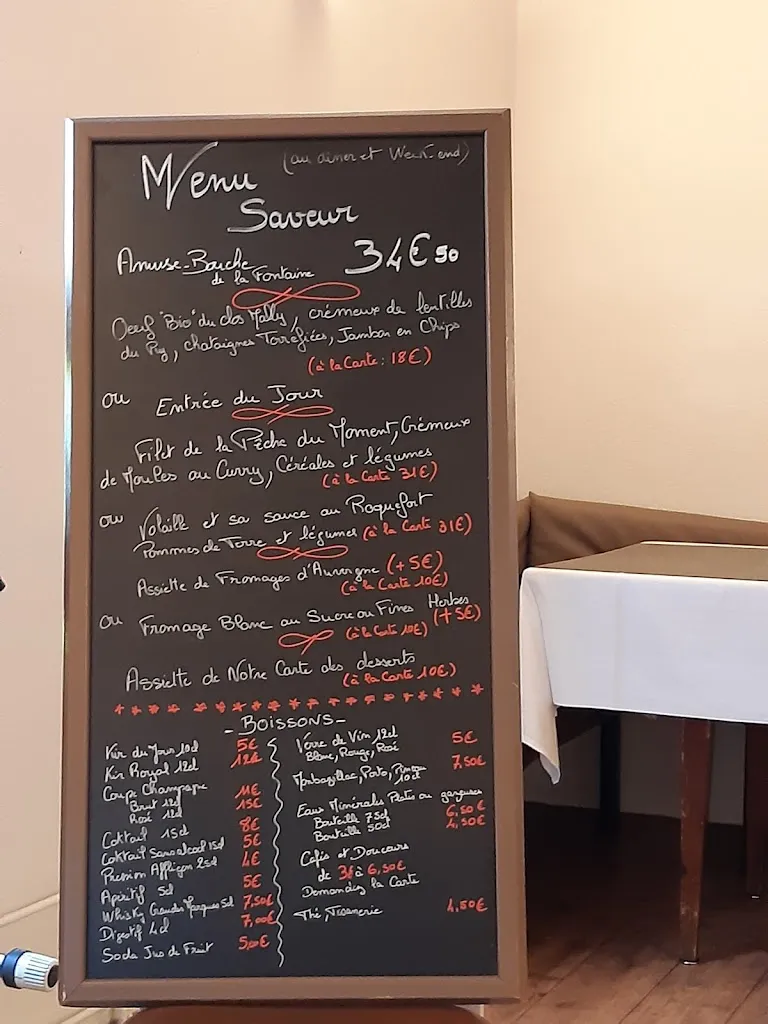 (au dîner et Week-end)
Menu
Saveur
Amuse-Bouche
de la Fontaine
34€50
Oeuf "Bio" du clos Mally, crémeux de lentilles
du Puy, chataignes Torrefiées, Jambon en Chips
(à la Carte: 18€)
ou Entrée du Jour
Filet de la Pêche du Moment, Crémeux
de Moules au Curry, Céréales et légumes
(à la Carte 31€)
ou Volaille et sa sauce au Roquefort
Pommes de Terre et légumes (à la Carte 31€)
Assiette de Fromages d'Auvergne (+5€)
(à la Carte 10€)
ou Fromage Blanc au Sucre ou Fines Herbes
(à la Carte 10€) (+5€)
Assiette de Notre Carte des desserts
(à la Carte 10€)
- BOISSONS -
Kir du Jour 10cl 5€
Kir Royal 12cl 12€
Coupe Champagne
Brut 12cl 11€
Rosé 12cl 15€
Coktail 15cl 8€
Coktail Sans alcool 15cl 5€
Pression Affligen 25cl 4€
Apéritif 5cl 5€
Whisky Grandes Marques 5cl 7,50€
Digestif 4cl 7,00€
Soda Jus de Fruit 5,00€
Verre de Vin 12cl 5€
Blanc, Rouge, Rosé
Monbazillac, Porto, Pineau 7,50€
10cl
Eaux Minérales Plates ou gazeuses
Bouteille 75cl 6,50€
Bouteille 50cl 4,50€
Cafés et Douceurs
de 3€ à 6,50€
Demandez la Carte
Thé, Tisanerie 4,50€